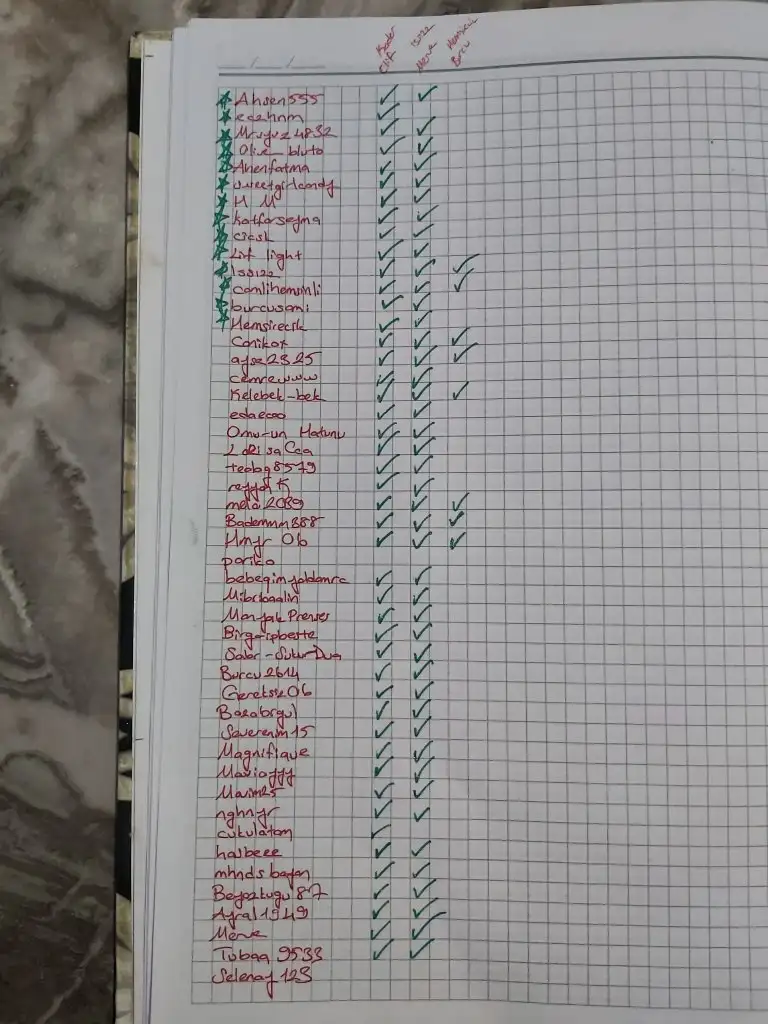 Bader Elif
ıssız Merve
Hemsicik Burcu
Ahsen555
ecehnm
Mrsyvz4832
Olie_bluto
Anenfatma
sweetgirlcandy
H M
Katforseyma
cicisk
Lif light
Issizz
camlihemsinli
burcusami
Hemsirecik
Conikot
ayse2325
cemrewww
Kelebek-bek
edaecoo
Omu-un Hatunu
LarisaCca
teobg8579
reyyan K
melai2089
Bademmm388
Hmyr 06
pariko
bebegimyoldamrc
Mibribaglin
Manyak Prenses
Birgaripbeste
Sabr-SukurDua
Burcu2614
Gereksiz06
Bazabrgul
Severem15
Magnifique
Mavioyyy
Mavim25
nghnyr
cukulatam
halbeee
mhnds bayan
Beyazkugu87
Ayral1949
Merve
Tubaa 9533
Selenay123